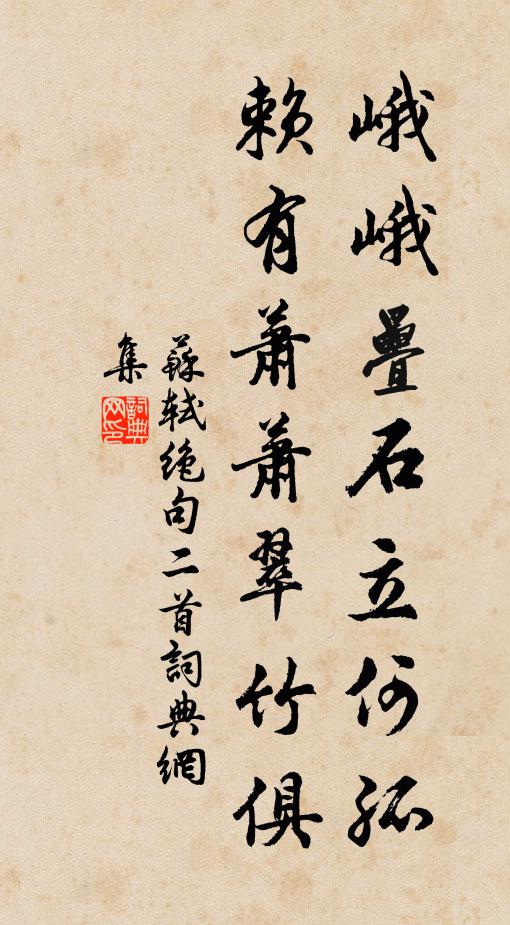 峨峨疊石立何孤
賴有蕭蕭翠竹俱
蘇軾絶句二首詞典網
集
詞典網印